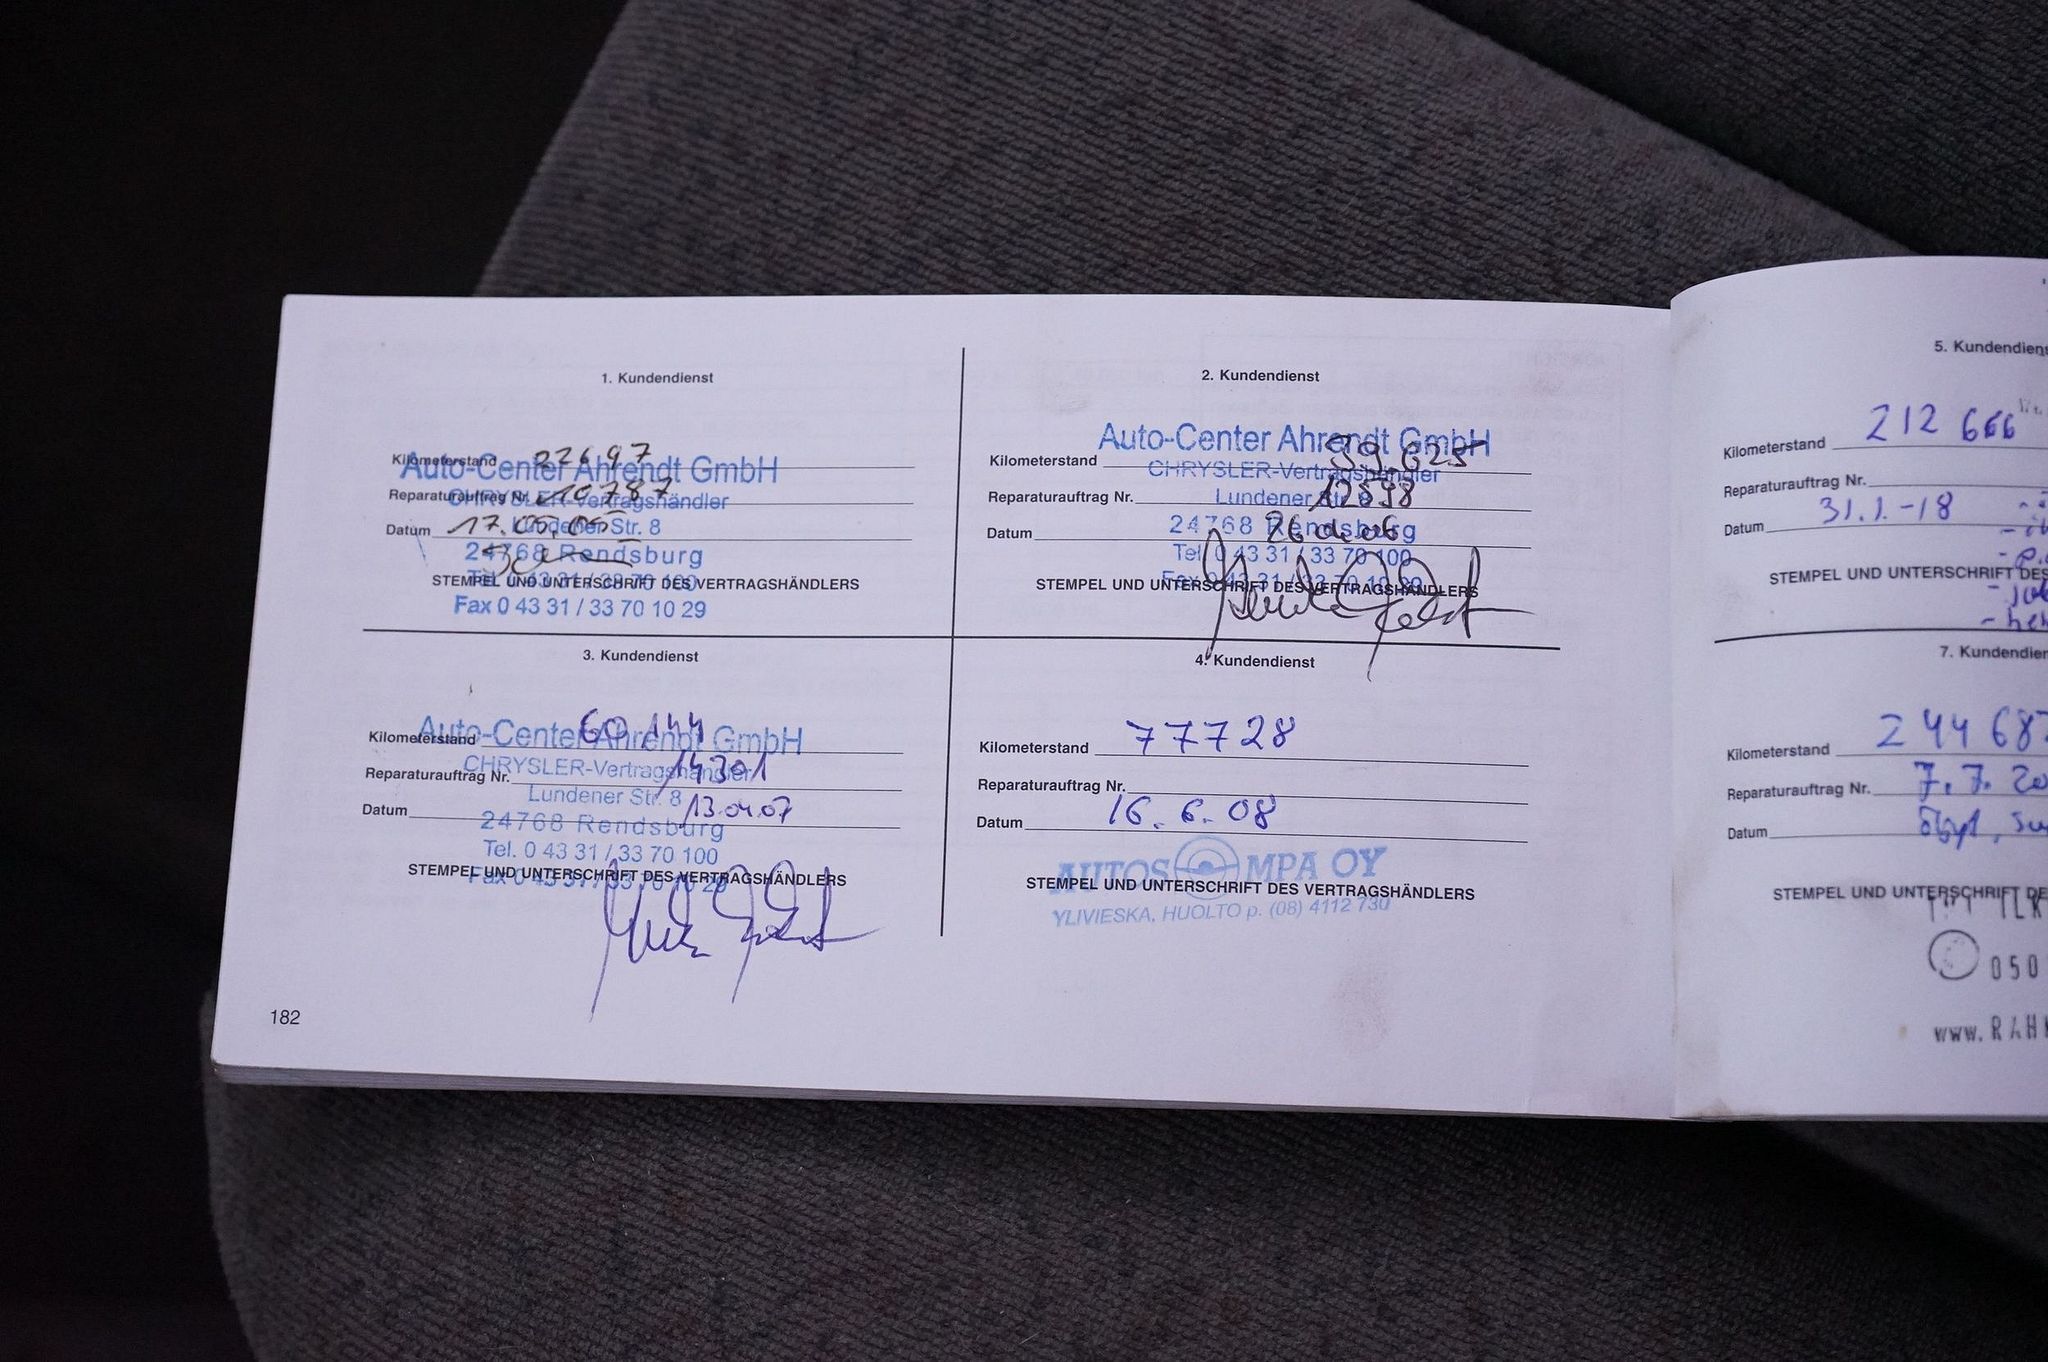 1. Kundendienst
Kilometerstand 22697
Auto-Center Ahrendt GmbH
Reparaturauftrag Nr. 10787
CHRYSLER-Vertragshändler
Datum 17.05.05
Lundener Str. 8
24768 Rendsburg
STEMPEL UND UNTERSCHRIFT DES VERTRAGSHÄNDLERS
Tel. 0 43 31 / 33 70 100
Fax 0 43 31 / 33 70 10 29
2. Kundendienst
Auto-Center Ahrendt GmbH
Kilometerstand 39.625
CHRYSLER-Vertragshändler
Reparaturauftrag Nr. 12598
Lundener Str. 8
Datum 26.04.06
24768 Rendsburg
Tel. 0 43 31 / 33 70 100
Fax 0 43 31 / 33 70 10 29
STEMPEL UND UNTERSCHRIFT DES VERTRAGSHÄNDLERS
3. Kundendienst
Kilometerstand 60.144
Auto-Center Ahrendt GmbH
CHRYSLER-Vertragshändler
Reparaturauftrag Nr. 14301
Lundener Str. 8
Datum 13.04.07
24768 Rendsburg
Tel. 0 43 31 / 33 70 100
STEMPEL UND UNTERSCHRIFT DES VERTRAGSHÄNDLERS
Fax 0 43 31 / 33 70 10 29
4. Kundendienst
Kilometerstand 77728
Reparaturauftrag Nr.
Datum 16.6.08
AUTOSOMPA OY
STEMPEL UND UNTERSCHRIFT DES VERTRAGSHÄNDLERS
YLIVIESKA, HUOLTO p. (08) 4112 730
182
5. Kundendiens
Kilometerstand 212 666
Reparaturauftrag Nr.
Datum 31.1.-18
STEMPEL UND UNTERSCHRIFT DES
7. Kundendien
Kilometerstand 244 687
Reparaturauftrag Nr. 7.7.20
Datum
STEMPEL UND UNTERSCHRIFT DE
050
www.RAH